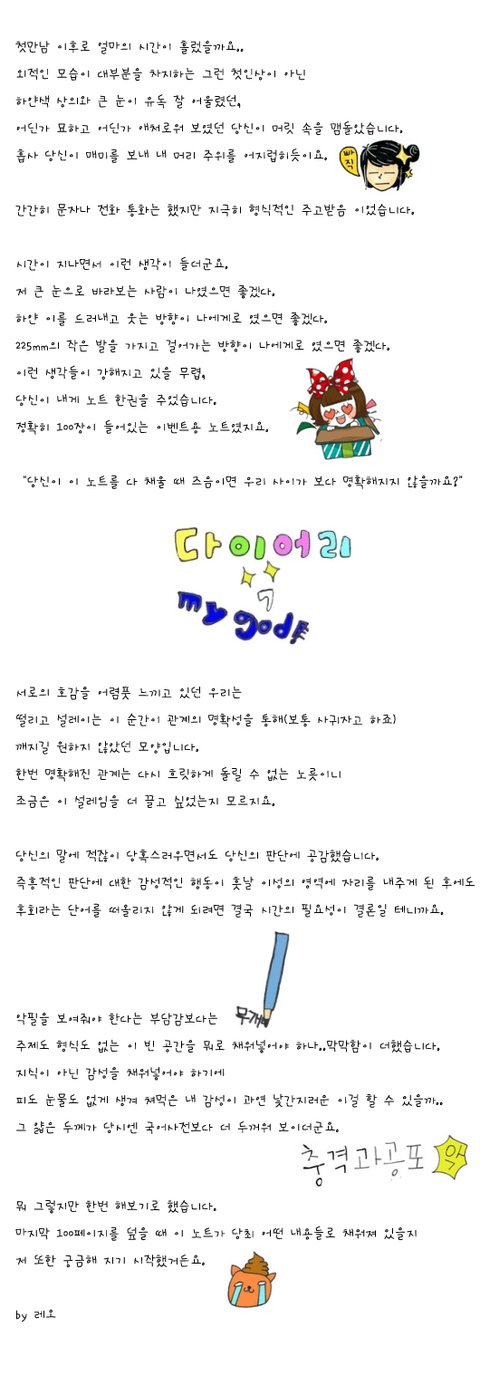 첫만남 이후로 얼마의 시간이 흘렀을까요..
외적인 모습이 대부분을 차지하는 그런 첫인상이 아닌
하얀색 상의와 큰 눈이 유독 잘 어울렸던,
어딘가 묘하고 어딘가 애처로워 보였던 당신이 머릿 속을 맴돌았습니다.
흡사 당신이 매미를 보내 내 머리 주위를 어지럽히듯이요.
빠직
간간히 문자나 전화 통화는 했지만 지극히 형식적인 주고받음 이었습니다.
시간이 지나면서 이런 생각이 들더군요.
저 큰 눈으로 바라보는 사람이 나였으면 좋겠다.
하얀 이를 드러내고 웃는 방향이 나에게로 였으면 좋겠다.
225mm의 작은 발을 가지고 걸어가는 방향이 나에게로 였으면 좋겠다.
이런 생각들이 강해지고 있을 무렵,
당신이 내게 노트 한권을 주었습니다.
정확히 100장이 들어있는 이벤트용 노트였지요.
"당신이 이 노트를 다 채울 때 즈음이면 우리 사이가 보다 명확해지지 않을까요?"
다이어리
my god!
서로의 호감을 어렴풋 느끼고 있던 우리는
떨리고 설레이는 이 순간이 관계의 명확성을 통해(보통 사귀자고 하죠)
깨지길 원하지 않았던 모양입니다.
한번 명확해진 관계는 다시 흐릿하게 돌릴 수 없는 노릇이니
조금은 이 설레임을 더 끌고 싶었는지 모르지요.
당신의 말에 적잖이 당혹스러우면서도 당신의 판단에 공감했습니다.
즉흥적인 판단에 대한 감성적인 행동이 훗날 이성의 영역에 자리를 내주게 된 후에도
후회라는 단어를 떠올리지 않게 되려면 결국 시간의 필요성이 결론일 테니까요.
무게
악필을 보여줘야 한다는 부담감보다는
주제도 형식도 없는 이 빈 공간을 뭐로 채워넣어야 하나..막막함이 더했습니다.
지식이 아닌 감성을 채워넣어야 하기에
피도 눈물도 없게 생겨 쳐먹은 내 감성이 과연 낯간지러운 이걸 할 수 있을까..
그 얇은 두께가 당시엔 국어사전보다 더 두꺼워 보이더군요.
충격과공포 악
뭐 그렇지만 한번 해보기로 했습니다.
마지막 100페이지를 덮을 때 이 노트가 당최 어떤 내용들로 채워져 있을지
저 또한 궁금해 지기 시작했거든요.
by 레오